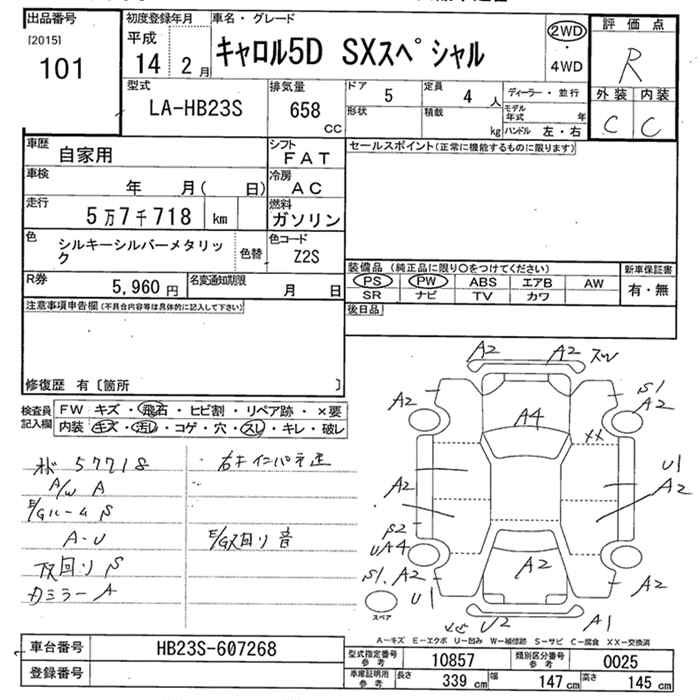 出品番号 初度登録年月 車名・グレード 評価点
[2015] 平成 2WD
101 14 2月 キャロル5D SXスペシャル ・ R
4WD
型式 排気量 ドア 定員 ディーラー・並行 外装 内装
LA-HB23S 658 CC 5 4 人 モデル年式 年 C C
形状 積載 kg ハンドル 左・右
車歴 自家用 シフト FAT セールスポイント(正常に機能するものに限ります)
車検 年 月( 日) 冷房 AC
走行 5万7千718 km 燃料 ガソリン
色 シルキーシルバーメタリック 色替 色コード Z2S
R券 5,960円 名変通知期限 月 日
装備品(純正品に限り○をつけてください) 新車保証書
PS PW ABS エアB AW 有・無
SR ナビ TV カワ
注意事項申告欄(不具合内容等は具体的に記入して下さい) 後日品
修復歴 有〔箇所 〕
検査員記入欄 FW キズ・飛石・ヒビ割・リペア跡・×要
内装 キズ・汚レ・コゲ・穴・スレ・キレ・破レ
57718
A/W A
E/Gルーム S
A・U
下回り S
カミラー A
E/G又回り 音
A2 A2 スW
A2 S1 A2
A4
XX
A2 U1 A2
S2
UA4
S1.A2 A2 A2
U1
スペア U2 A1
A－キズ E－エクボ U－凹み W－補修跡 S－サビ C－腐食 XX－交換済
車台番号 HB23S-607268 型式指定番号 参考 10857 類別区分番号 参考 0025
登録番号 車庫証明用 参考 長さ 339 cm 幅 147 cm 高さ 145 cm